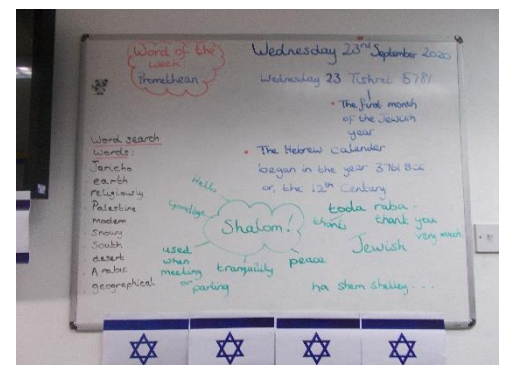 Word of the
week:
Promethean
Wednesday 23rd September 2020
Wednesday 23 Tishrei 5781
• The first month
of the Jewish
year
• The Hebrew calender
began in the year 3761 BCE
or, the 12th Century
Word search
words:
Jericho
earth
religiously
Palestine
modern
snowy
South
desert
Arabic
geographical
Hello
Goodbye
Shalom!
used
when
meeting
or
parting
tranquility
peace
toda raba.
thank
thank you
very much
Jewish
ha shem shelley...